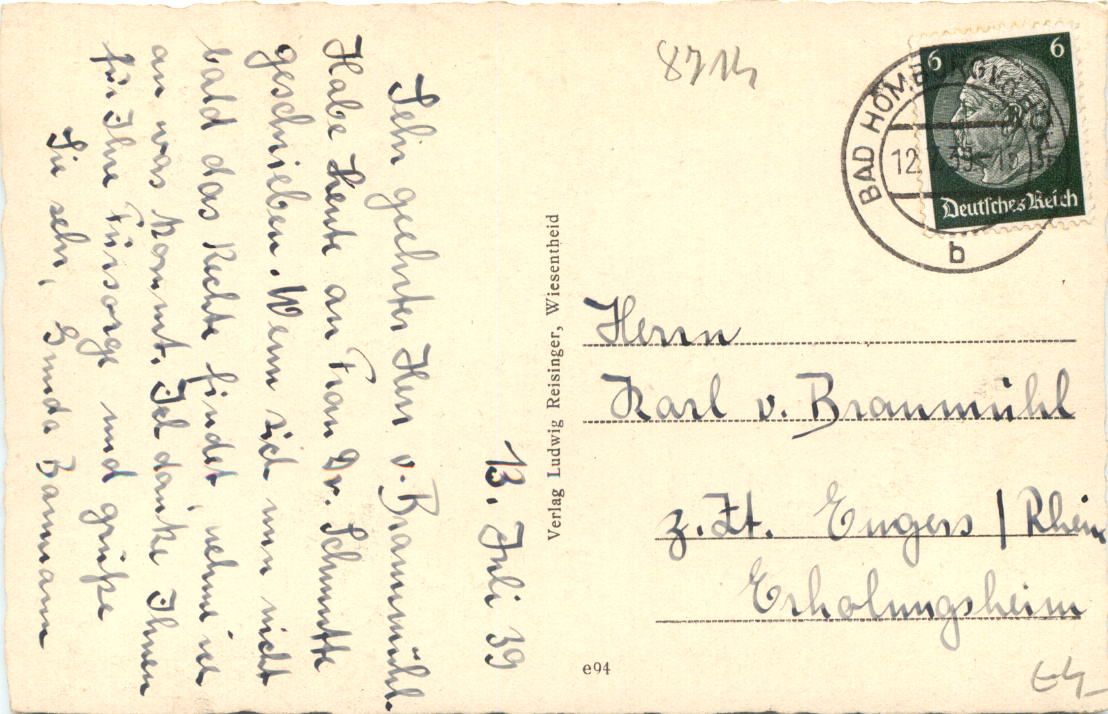 13. Juli 39
Sehr geehrter Herr v. Braunmühl.
Habe heute an Frau Dr. Schmutte
geschrieben. Wenn sich nun nicht
bald das Rechte findet, nehme ich
an was kommt. Ich danke Ihnen
für Ihre Fürsorge und grüße
Sie sehr, Baumann
Verlag Ludwig Reisinger, Wiesentheid
8714
6 6
Deutsches Reich
BAD HOMBURG
12.
b
Herrn
Karl v. Braunmühl
z. Zt. Engers / Rhein
Erholungsheim
e94